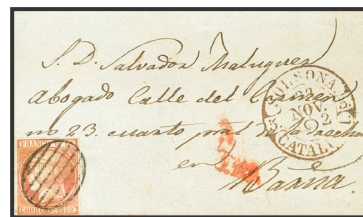 S. D. Salvador Maluquer
Abogado Calle del Carmen
no 23. cuarto pral de la derecha
en
Barna.
SOLSONA
NOV.
CATALUÑA
FRANCO